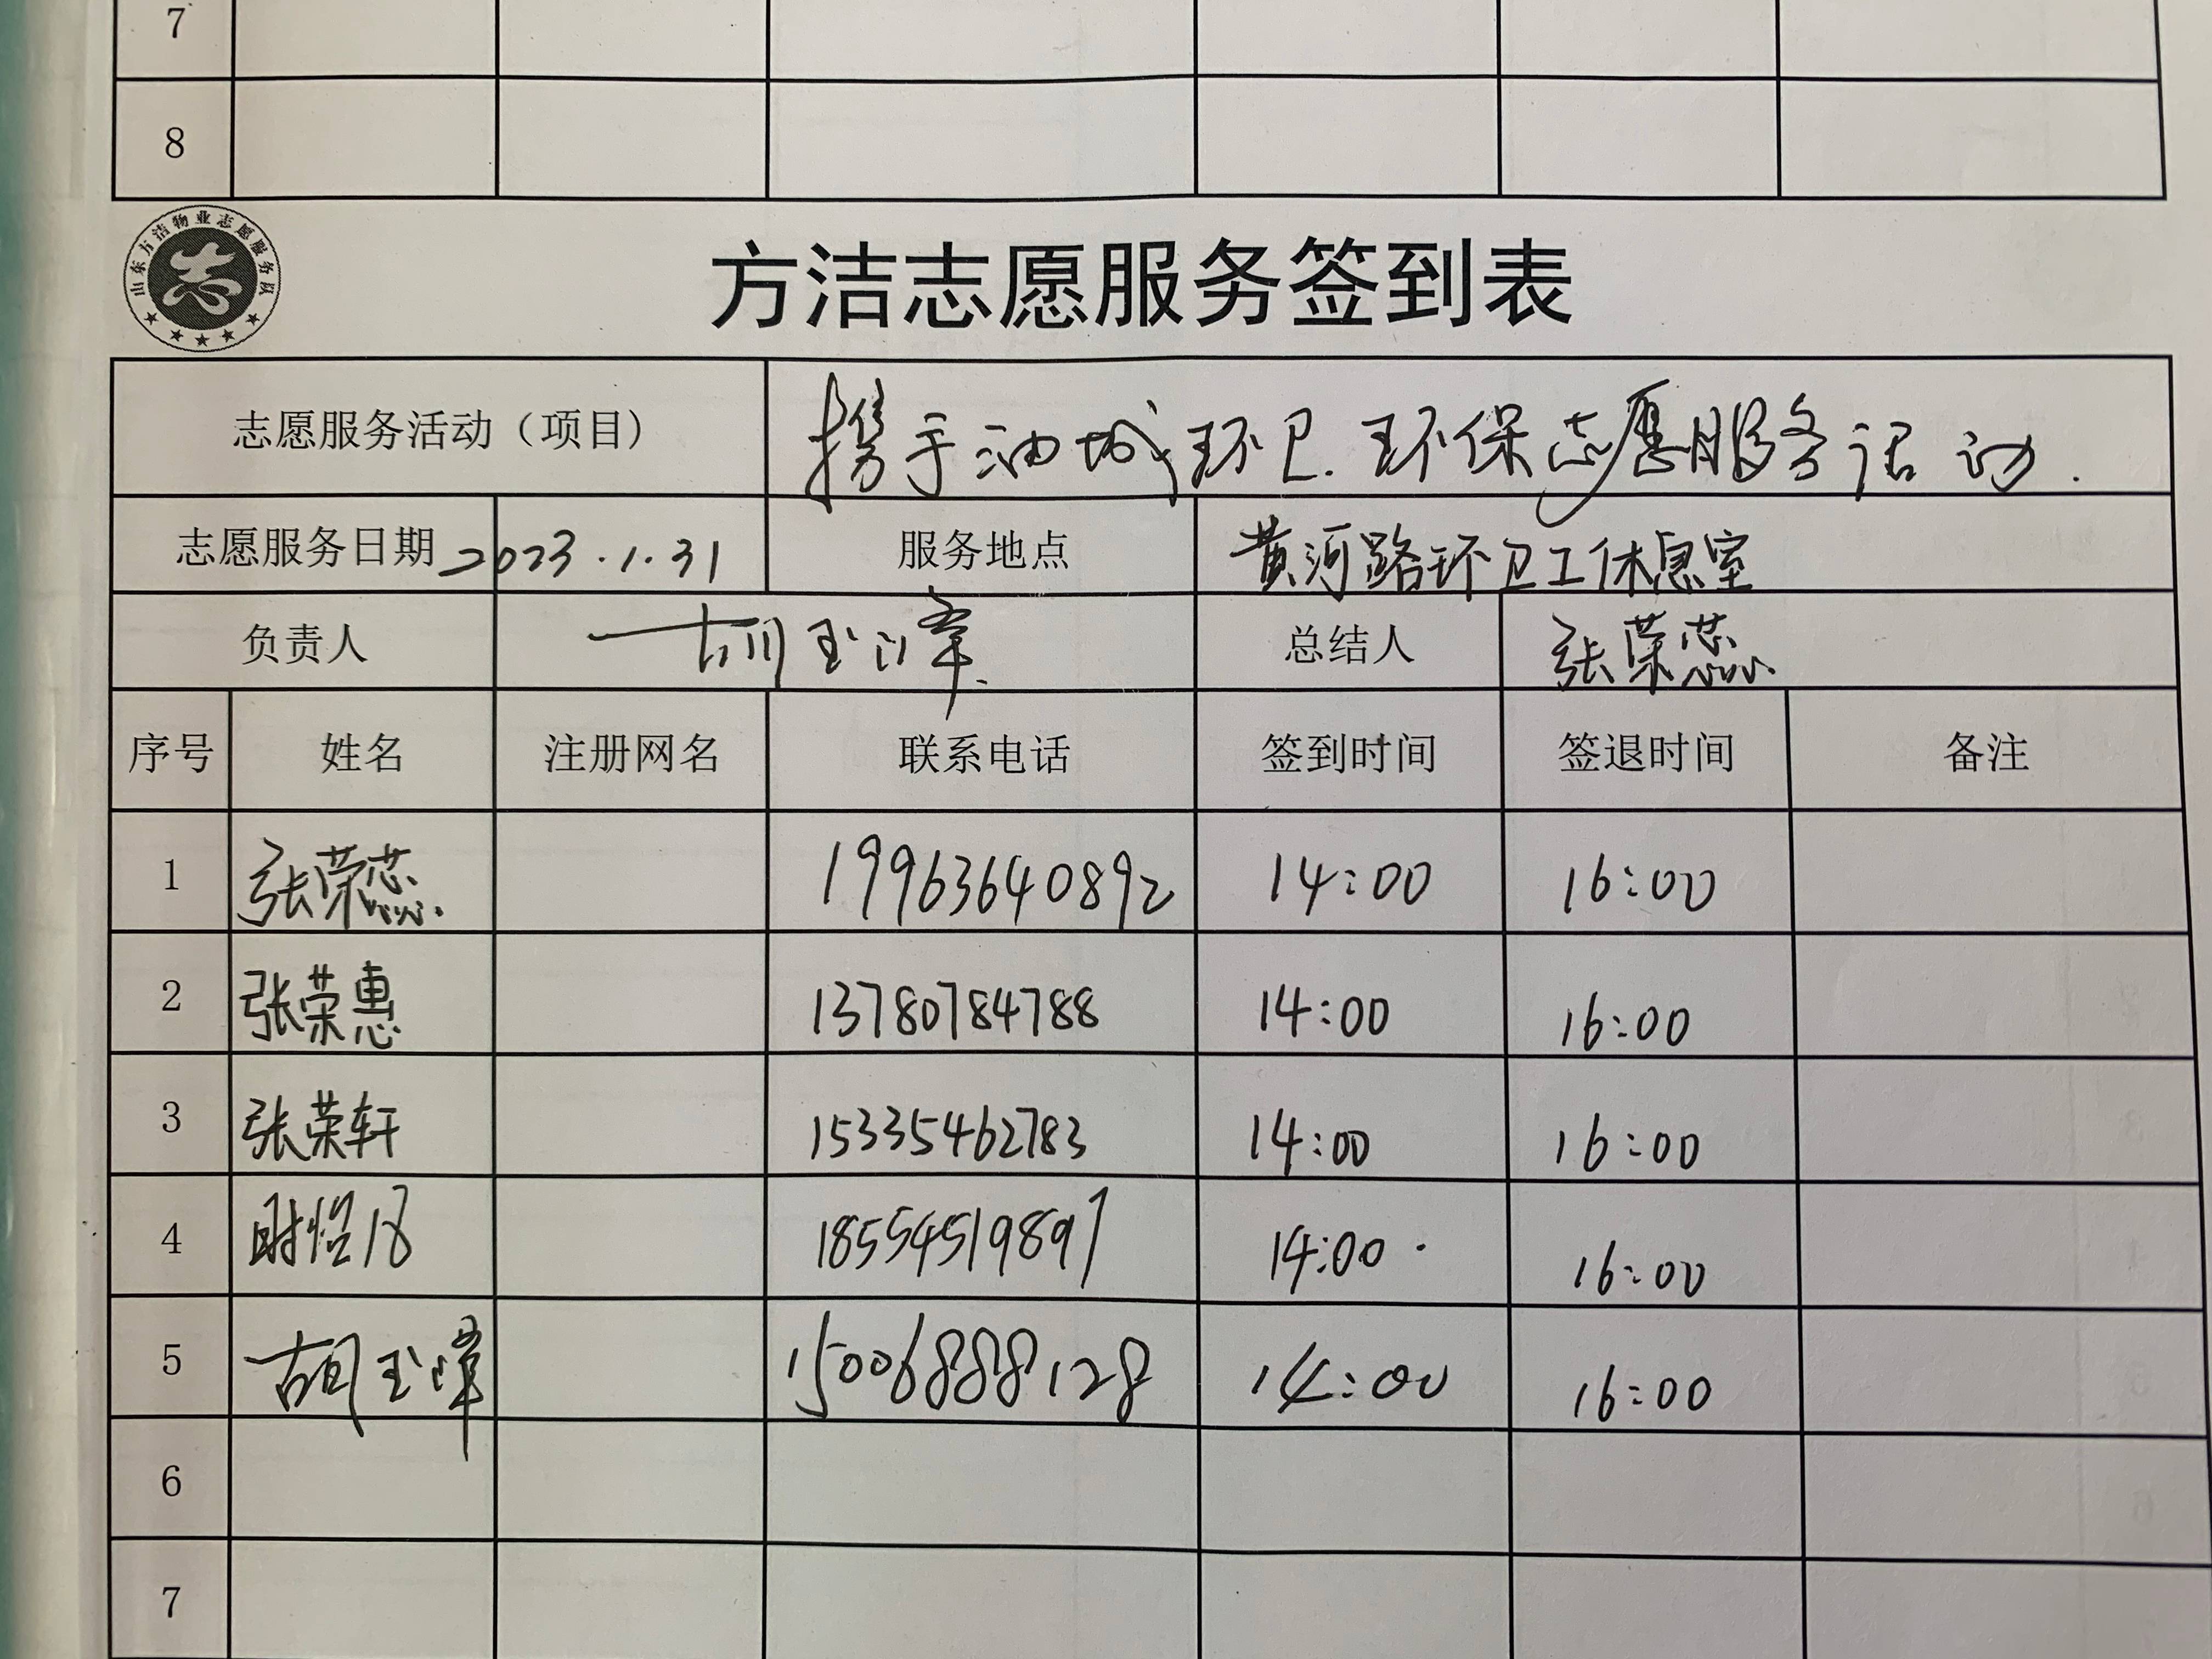 7
8
山东方洁物业志愿服务队
志
方洁志愿服务签到表
志愿服务活动（项目） 携手油城环卫.环保志愿服务活动.
志愿服务日期 2023.1.31 服务地点 黄河路环卫工休息室
负责人 胡玉 总结人 张荣蕊
序号 姓名 注册网名 联系电话 签到时间 签退时间 备注
1 张荣蕊 19963640892 14:00 16:00
2 张荣惠 13780784788 14:00 16:00
3 张荣轩 15335462783 14:00 16:00
4 18554519897 14:00 16:00
5 胡玉 15006888128 14:00 16:00
6
7